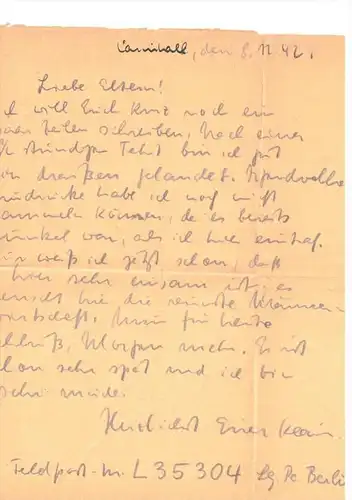 , den 8.11.42.
Liebe Eltern!
ch will Euch kurz noch ein
paar Zeilen schreiben. Nach einer
stündigen Fahrt bin ich gut
hier draußen gelandet. Irgendwelche
indrücke habe ich noch nicht
ammeln können, da es bereits
unkel war, als ich hier eintraf.
nur weiß ich jetzt schon, daß
hier sehr einsam ist; es
errscht hie die reinste Männer-
wirtschaft. Nun für heute
chluß, Morgen mehr. Es ist
chon sehr spät und ich bin
sehr müde.
Herzlichst Euer
Feldpost-Nr. L 35304 Lg. Pa Berlin